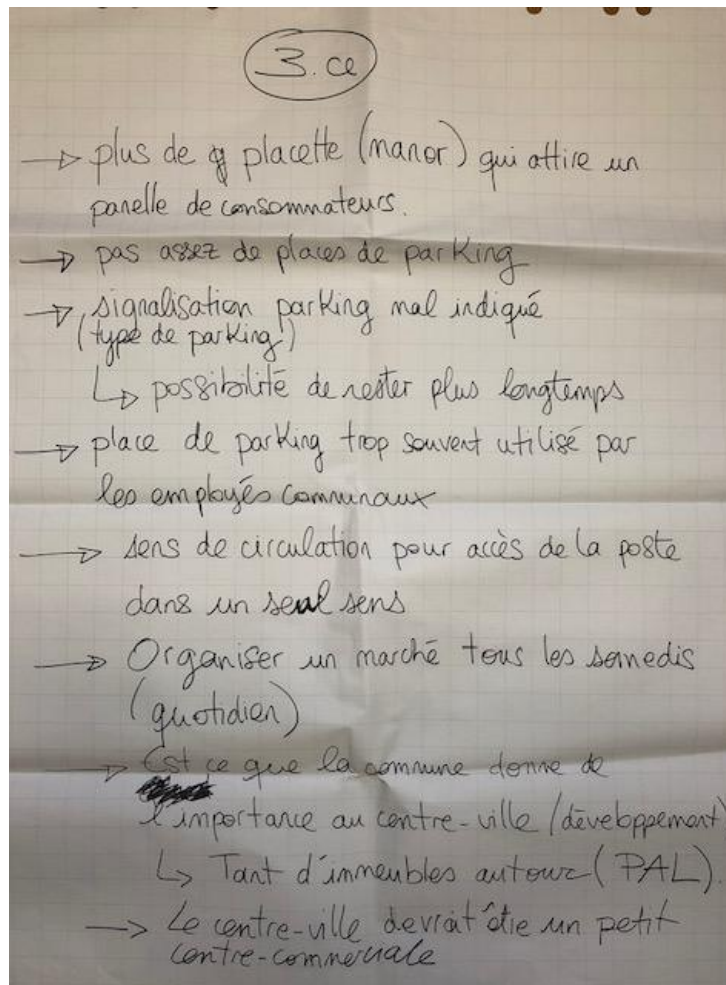 3. ce
→ plus de placette (manor) qui attire un
panelle de consommateurs.
→ pas assez de places de parking
→ signalisation parking mal indiqué
(type de parking)
↳ possibilité de rester plus longtemps
→ place de parking trop souvent utilisé par
les employés communaux
→ sens de circulation pour accès de la poste
dans un seul sens
→ Organiser un marché tous les samedis
(quotidien)
→ Est ce que la commune donne de
l'importance au centre-ville (développement)
↳ Tant d'immeubles autour (PAL).
→ Le centre-ville devrait être un petit
centre-commerciale